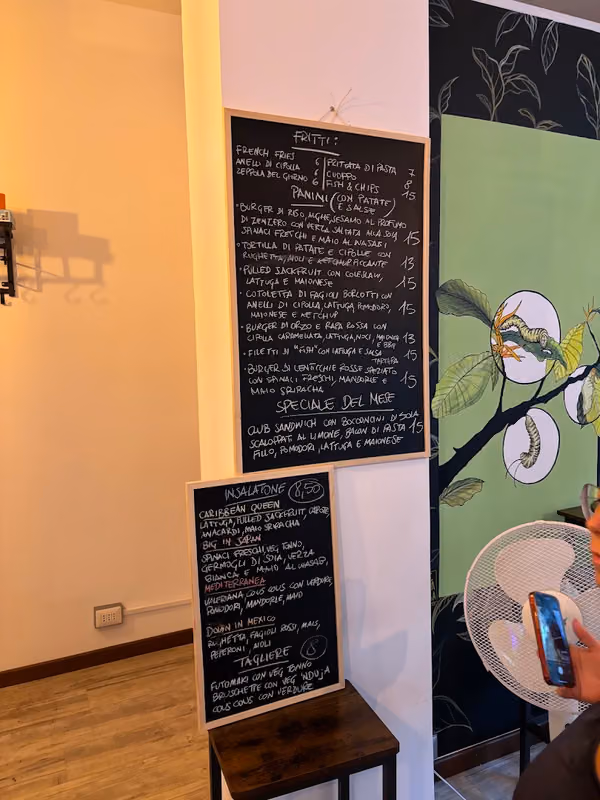 FRITTI:
FRENCH FRIES 6
ANELLI DI CIPOLLA 6
ZEPPOLA DEL GIORNO 6
FRITTATA DI PASTA 7
CUOPPO 8
FISH & CHIPS 15
PANINI (CON PATATE E SALSE)
• BURGER DI RISO, ALGHE, SESAMO AL PROFUMO
DI ZENZERO CON VERZA SALTATA ALLA SOIA
SPINACI FRESCHI E MAIO AL WASABI 15
• TORTILLA DI PATATE E CIPOLLE CON
RUGHETTA, AIOLI E KETCHUP PICCANTE 13
• PULLED JACKFRUIT CON COLESLAW,
LATTUGA E MAIONESE 15
• COTOLETTA DI FAGIOLI BORLOTTI CON
ANELLI DI CIPOLLA, LATTUGA, POMODORO,
MAIONESE E KETCHUP 15
• BURGER DI ORZO E RAPA ROSSA CON
CIPOLLA CARAMELLATA, LATTUGA, NOCI, MAIONESE 13
E BBQ
• FILETTI DI "FISH" CON LATTUGA E SALSA 15
TARTARA
• BURGER DI LENTICCHIE ROSSE SPEZIATO
CON SPINACI FRESCHI, MANDORLE E
MAIO SRIRACHA 15
SPECIALE DEL MESE
CLUB SANDWICH CON BOCCONCINI DI SOIA
SCALOPPATI AL LIMONE, BACON DI PASTA 15
FILLO, POMODORI, LATTUGA E MAIONESE
INSALATONE 8,50
CARIBBEAN QUEEN
LATTUGA, PULLED JACKFRUIT, CAROTE,
ANACARDI, MAIO SRIRACHA
BIG IN JAPAN
SPINACI FRESCHI, VEG TONNO,
GERMOGLI DI SOIA, VERZA
BIANCA E MAIO AL WASABI,
MEDITERRANEA
VALERIANA, COUS COUS CON VERDURE,
POMODORI, MANDORLE, MAIO
DOWN IN MEXICO
RUGHETTA, FAGIOLI ROSSI, MAIS,
PEPERONI, AIOLI
TAGLIERE 8
FUTOMAKI CON VEG TONNO
BRUSCHETTE CON VEG 'NDUJA
COUS COUS CON VERDURE